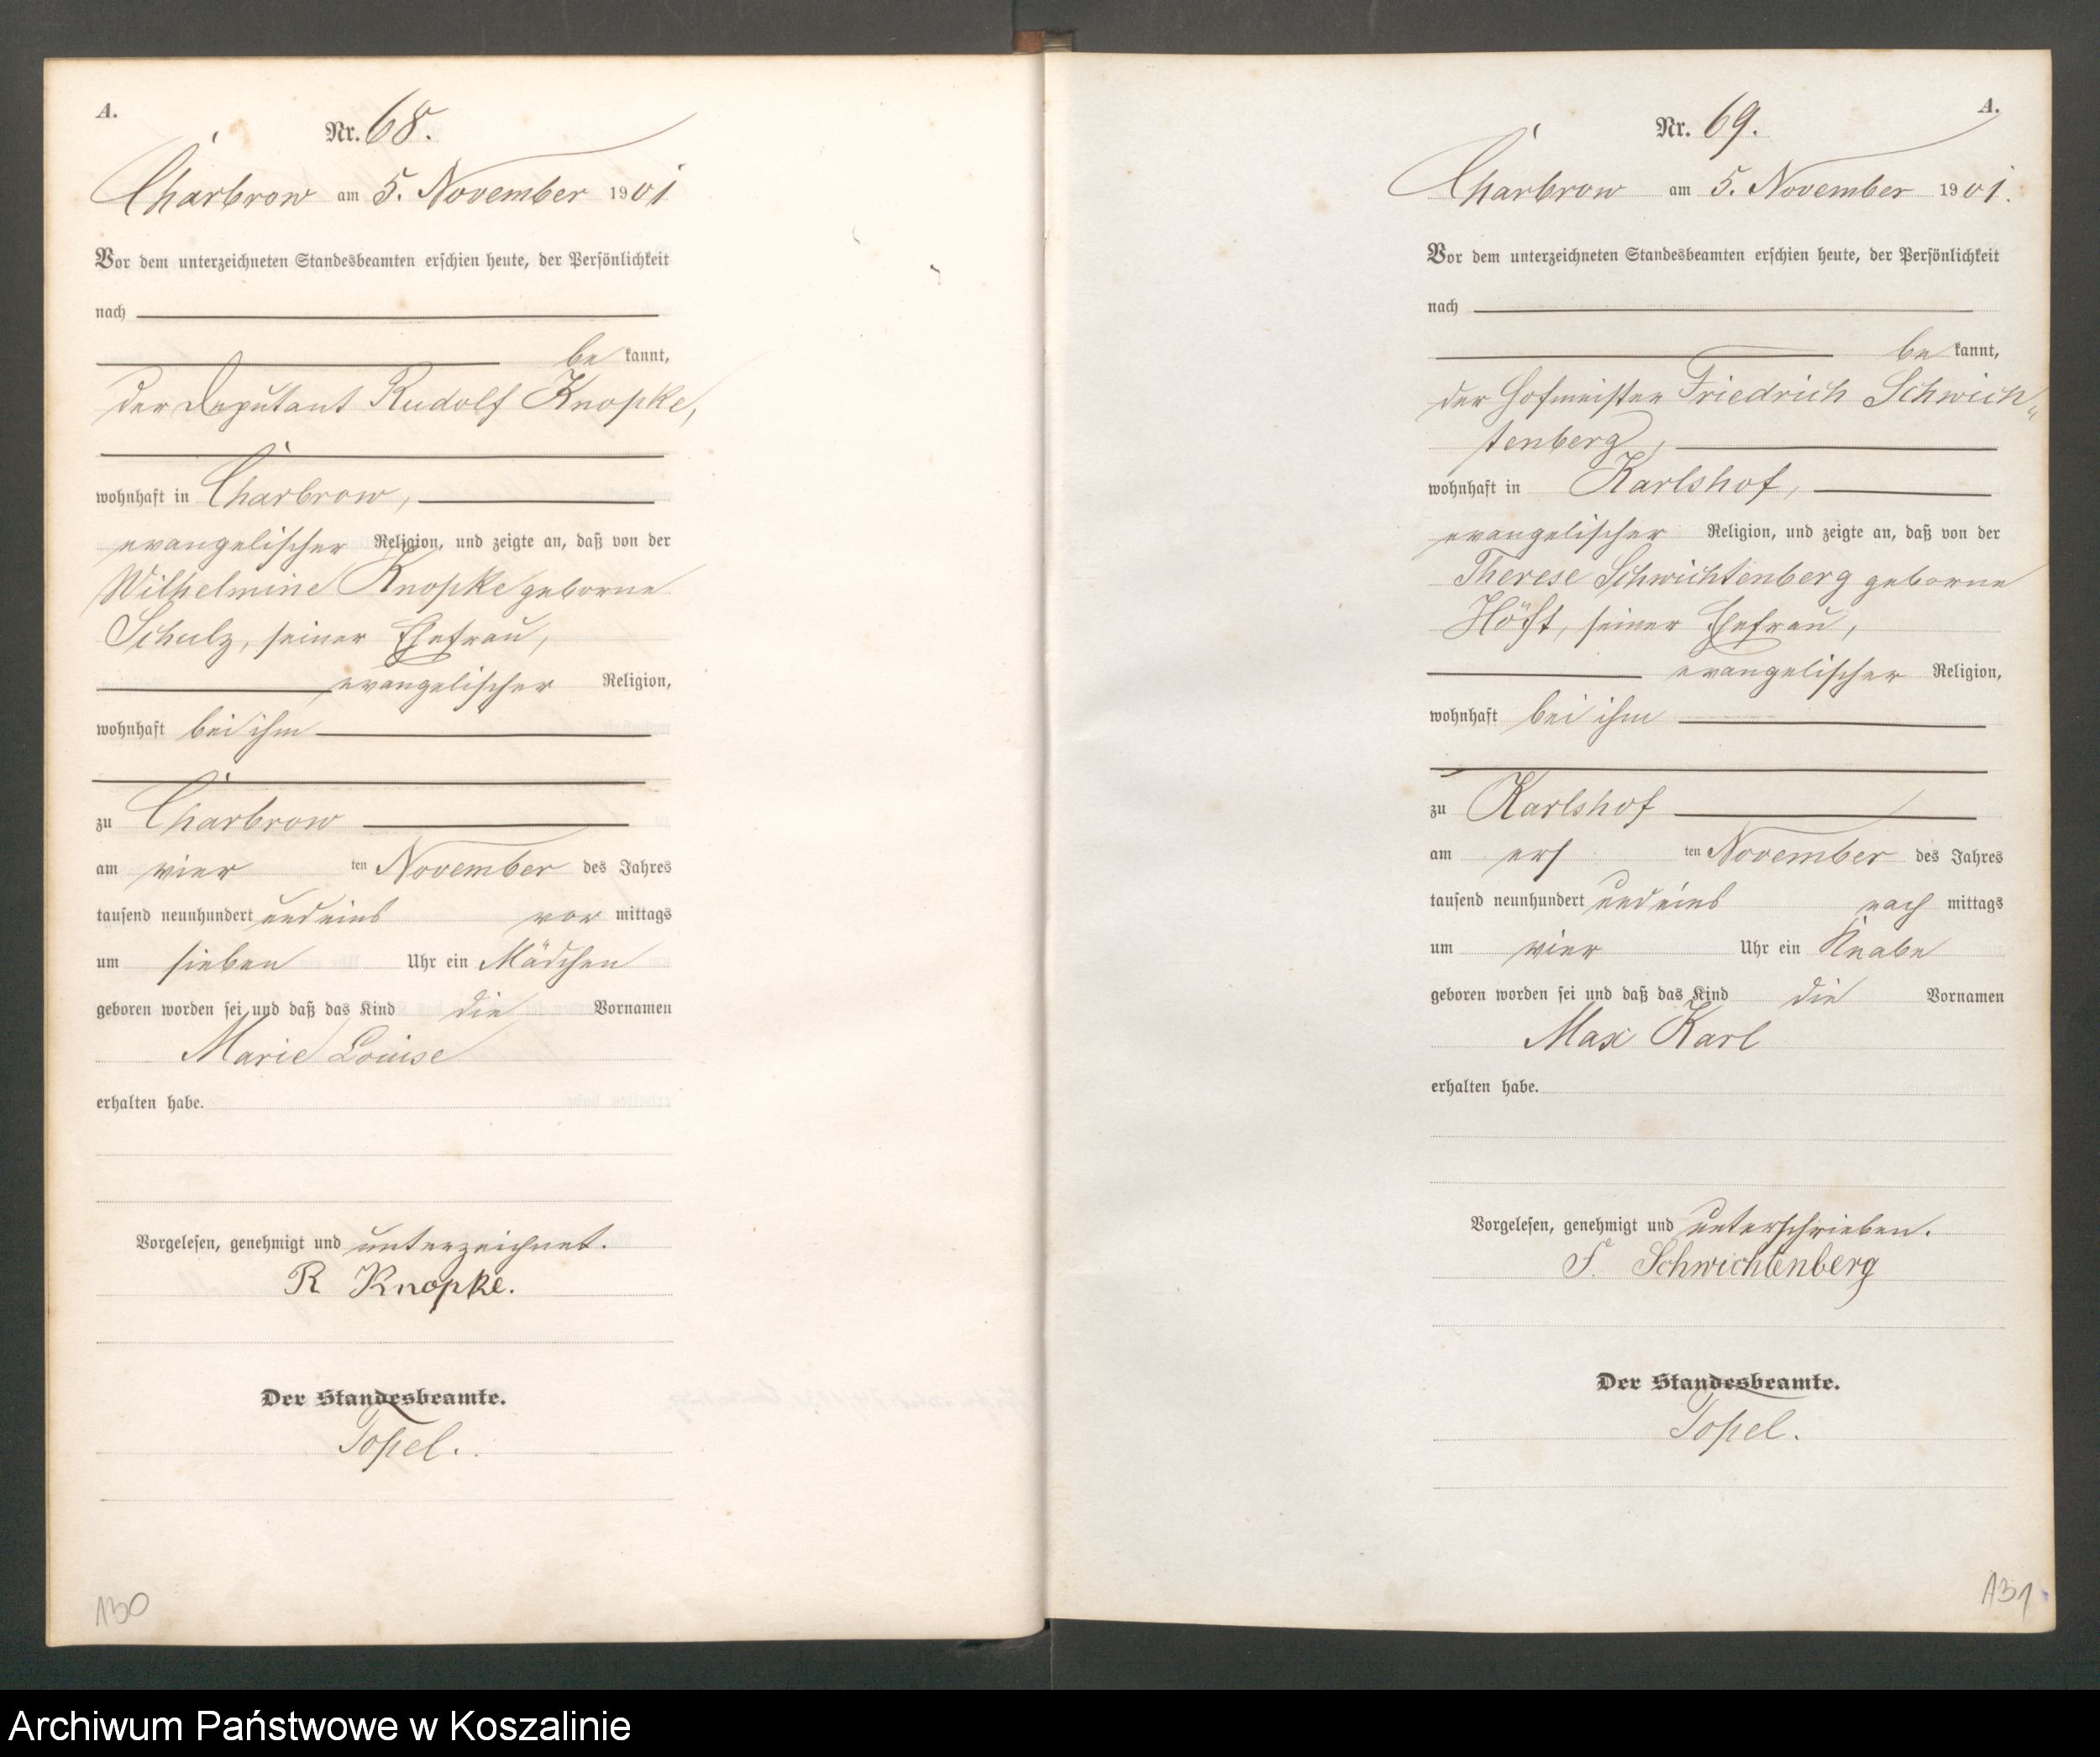 A.
Nr. 68.
Charbrow am 5. November 1901
Vor dem unterzeichneten Standesbeamten erschien heute, der Persönlichkeit
nach
be kannt,
der Deputant Rudolf Knopke,
wohnhaft in Charbrow,
evangelischer Religion, und zeigte an, daß von der
Wilhelmine Knopke geborne
Schulz, seiner Ehefrau,
evangelischer Religion,
wohnhaft bei ihm
zu Charbrow
am vier ten November des Jahres
tausend neunhundert und eins vor mittags
um sieben Uhr ein Mädchen
geboren worden sei und daß das Kind die Vornamen
Marie Louise
erhalten habe.
Vorgelesen, genehmigt und unterzeichnet.
R Knopke.
Der Standesbeamte.
Topel.
130
A.
Nr. 69.
Charbrow am 5. November 1901.
Vor dem unterzeichneten Standesbeamten erschien heute, der Persönlichkeit
nach
be kannt,
der Hofmeister Friedrich Schwich„
tenberg,
wohnhaft in Karlshof,
evangelischer Religion, und zeigte an, daß von der
Therese Schwichtenberg geborne
Höft, seiner Ehefrau,
evangelischer Religion,
wohnhaft bei ihm
zu Karlshof
am ers ten November des Jahres
tausend neunhundert und eins nach mittags
um vier Uhr ein Knabe
geboren worden sei und daß das Kind die Vornamen
Max Karl
erhalten habe.
Vorgelesen, genehmigt und unterschrieben.
F. Schwichtenberg
Der Standesbeamte.
Topel.
131
Archiwum Państwowe w Koszalinie